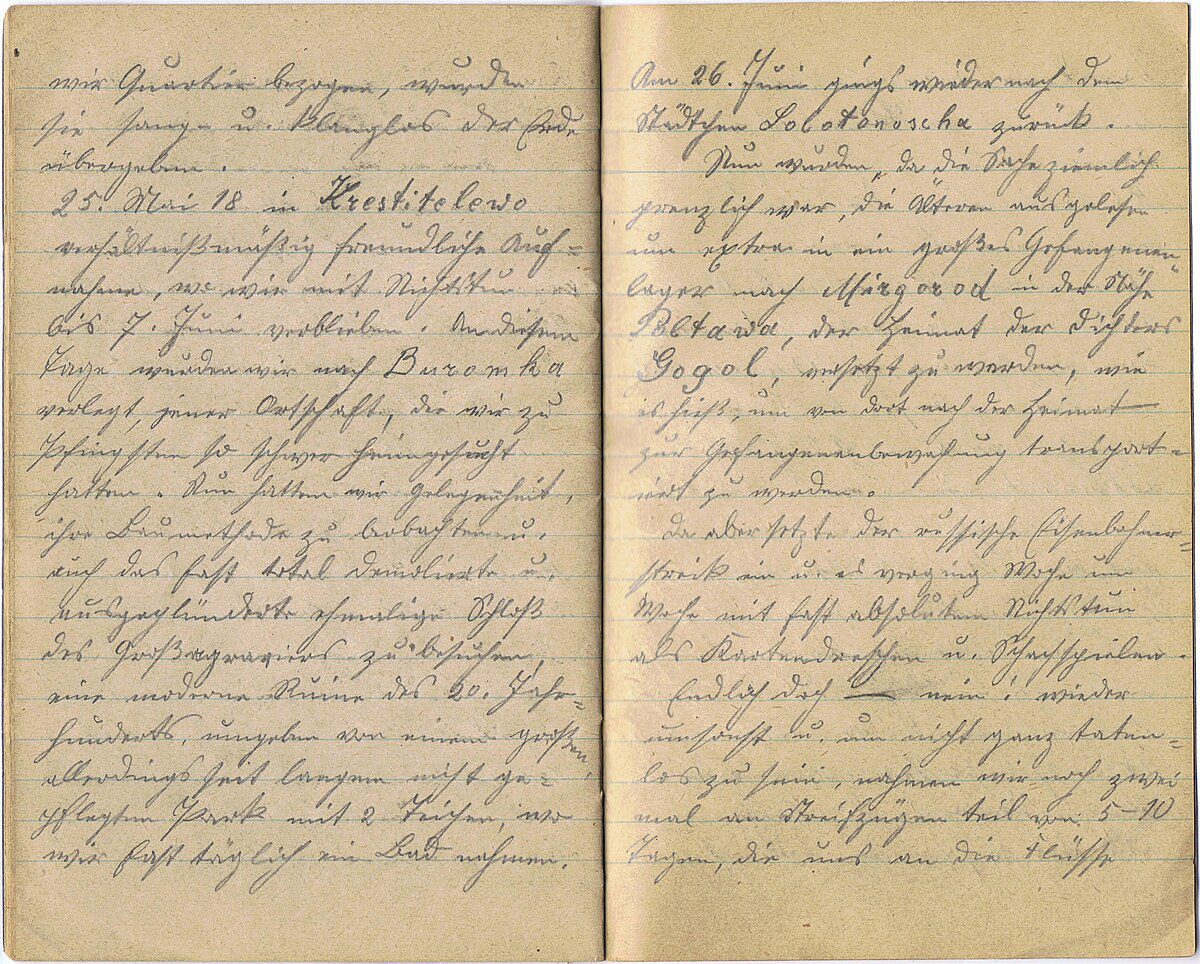 wir Quartier bezogen, wurden
sie sang- u. klanglos der Erde
übergeben.
25. Mai 18 in Krestitelewo
verhältnißmäßig freundliche Auf=
nahme, wo wir mit Nichtstun
bis 7. Juni verblieben. An diesem
Tage wurden wir nach Buromka
verlegt, jener Ortschaft, die wir zu
Pfingsten so schwer heimgesucht
hatten. Nun hatten wir Gelegenheit,
ihre Baumethode zu beobachten u.
auch das fast total demolierte u.
ausgeplünderte ehemalige Schloß
des Großagrariers zu besuchen,
eine moderne Ruine des 20. Jahr=
hunderts, umgeben von einem großen,
allerdings seit langem nicht ge=
pflegten Park mit 2 Teichen, wo
wir fast täglich ein Bad nahmen.
Am 26. Juni gings wieder nach dem
Städtchen Solotonoscha zurück.
Nun wurden, da die Sache ziemlich
brenzlich war, die Älteren ausgelesen
um extra in ein großes Gefangenen=
lager nach Mirgorod in der Nähe
Poltawa, der Heimat der Dichters
Gogol, versetzt zu werden, wie
es hieß, um von dort nach der Heimat
zur Gefangenenbewachung transport=
iert zu werden.
Da aber setzte der russische Eisenbahner=
streik ein u. es verging Woche um
Woche mit fast absolutem Nichtstun
als Kartendreschen u. Schachspielen.
Endlich doch — nein! wieder
umsonst u. um nicht ganz taten=
los zu sein, nahmen wir noch zwei
mal an Streifzügen teil von 5–10
Tagen, die uns an die Flüsse